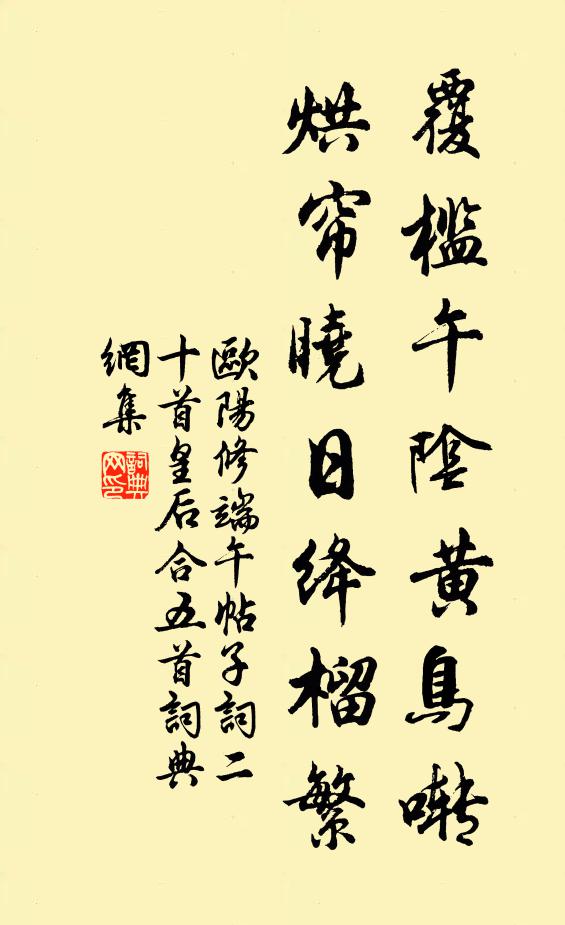 覆檻午陰黄鳥囀
烘帘曉日絳榴繁
歐陽修端午帖子詞二
十首皇后合五首詞典
網集
詞典网印